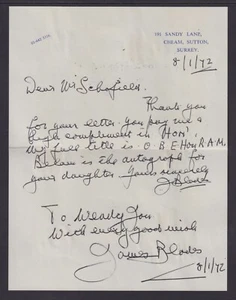 191 SANDY LANE,
CHEAM, SUTTON,
SURREY.
8/1/72
Dear Mr Schofield.
Thank you
for your letter. you pay me a
high compliment in 'HON'.
My full title is O B E Hon R.A.M.
Below is the autograph for
your daughter. Yours sincerely
J Blades
To Wendy Jon
With every good wish
James Blades
8/1/72